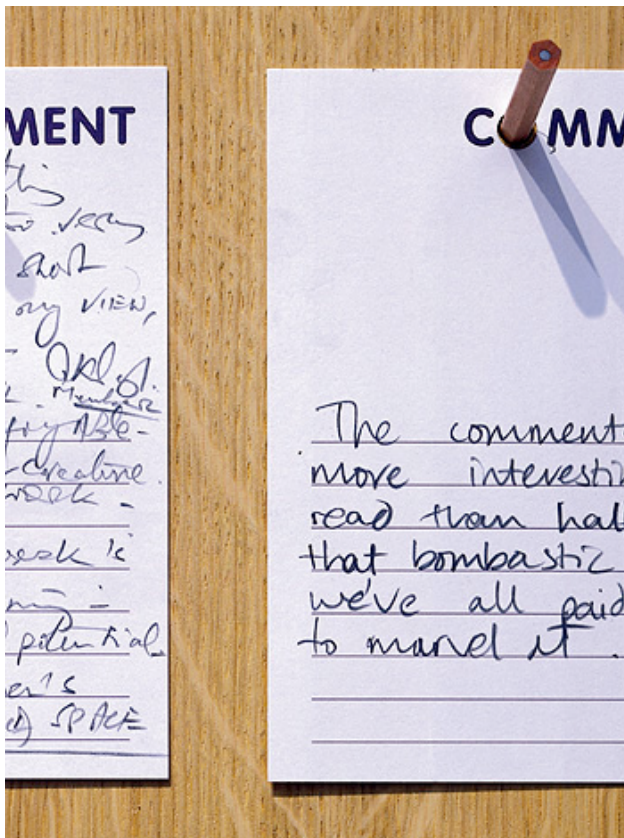 MENT
thing
to very
short
my VIEW,
Member
Able-
Creative
week -
week is
potential
er's
SPACE
COMM
The comment
more interesti
read than hal
that bombastic
we've all paid
to marvel at .